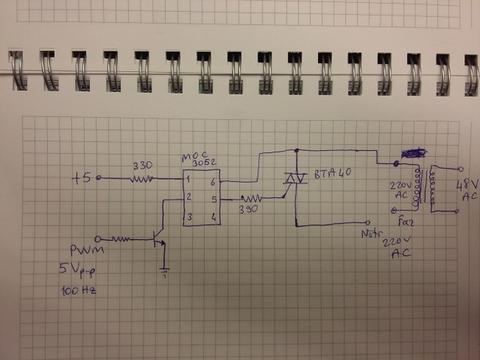 MOC
3052
330
+5
1
2
3
6
5
4
390
BTA40
220V
AC
48V
AC
Faz
Nötr
220V
AC
PWM
5Vp-p
100Hz